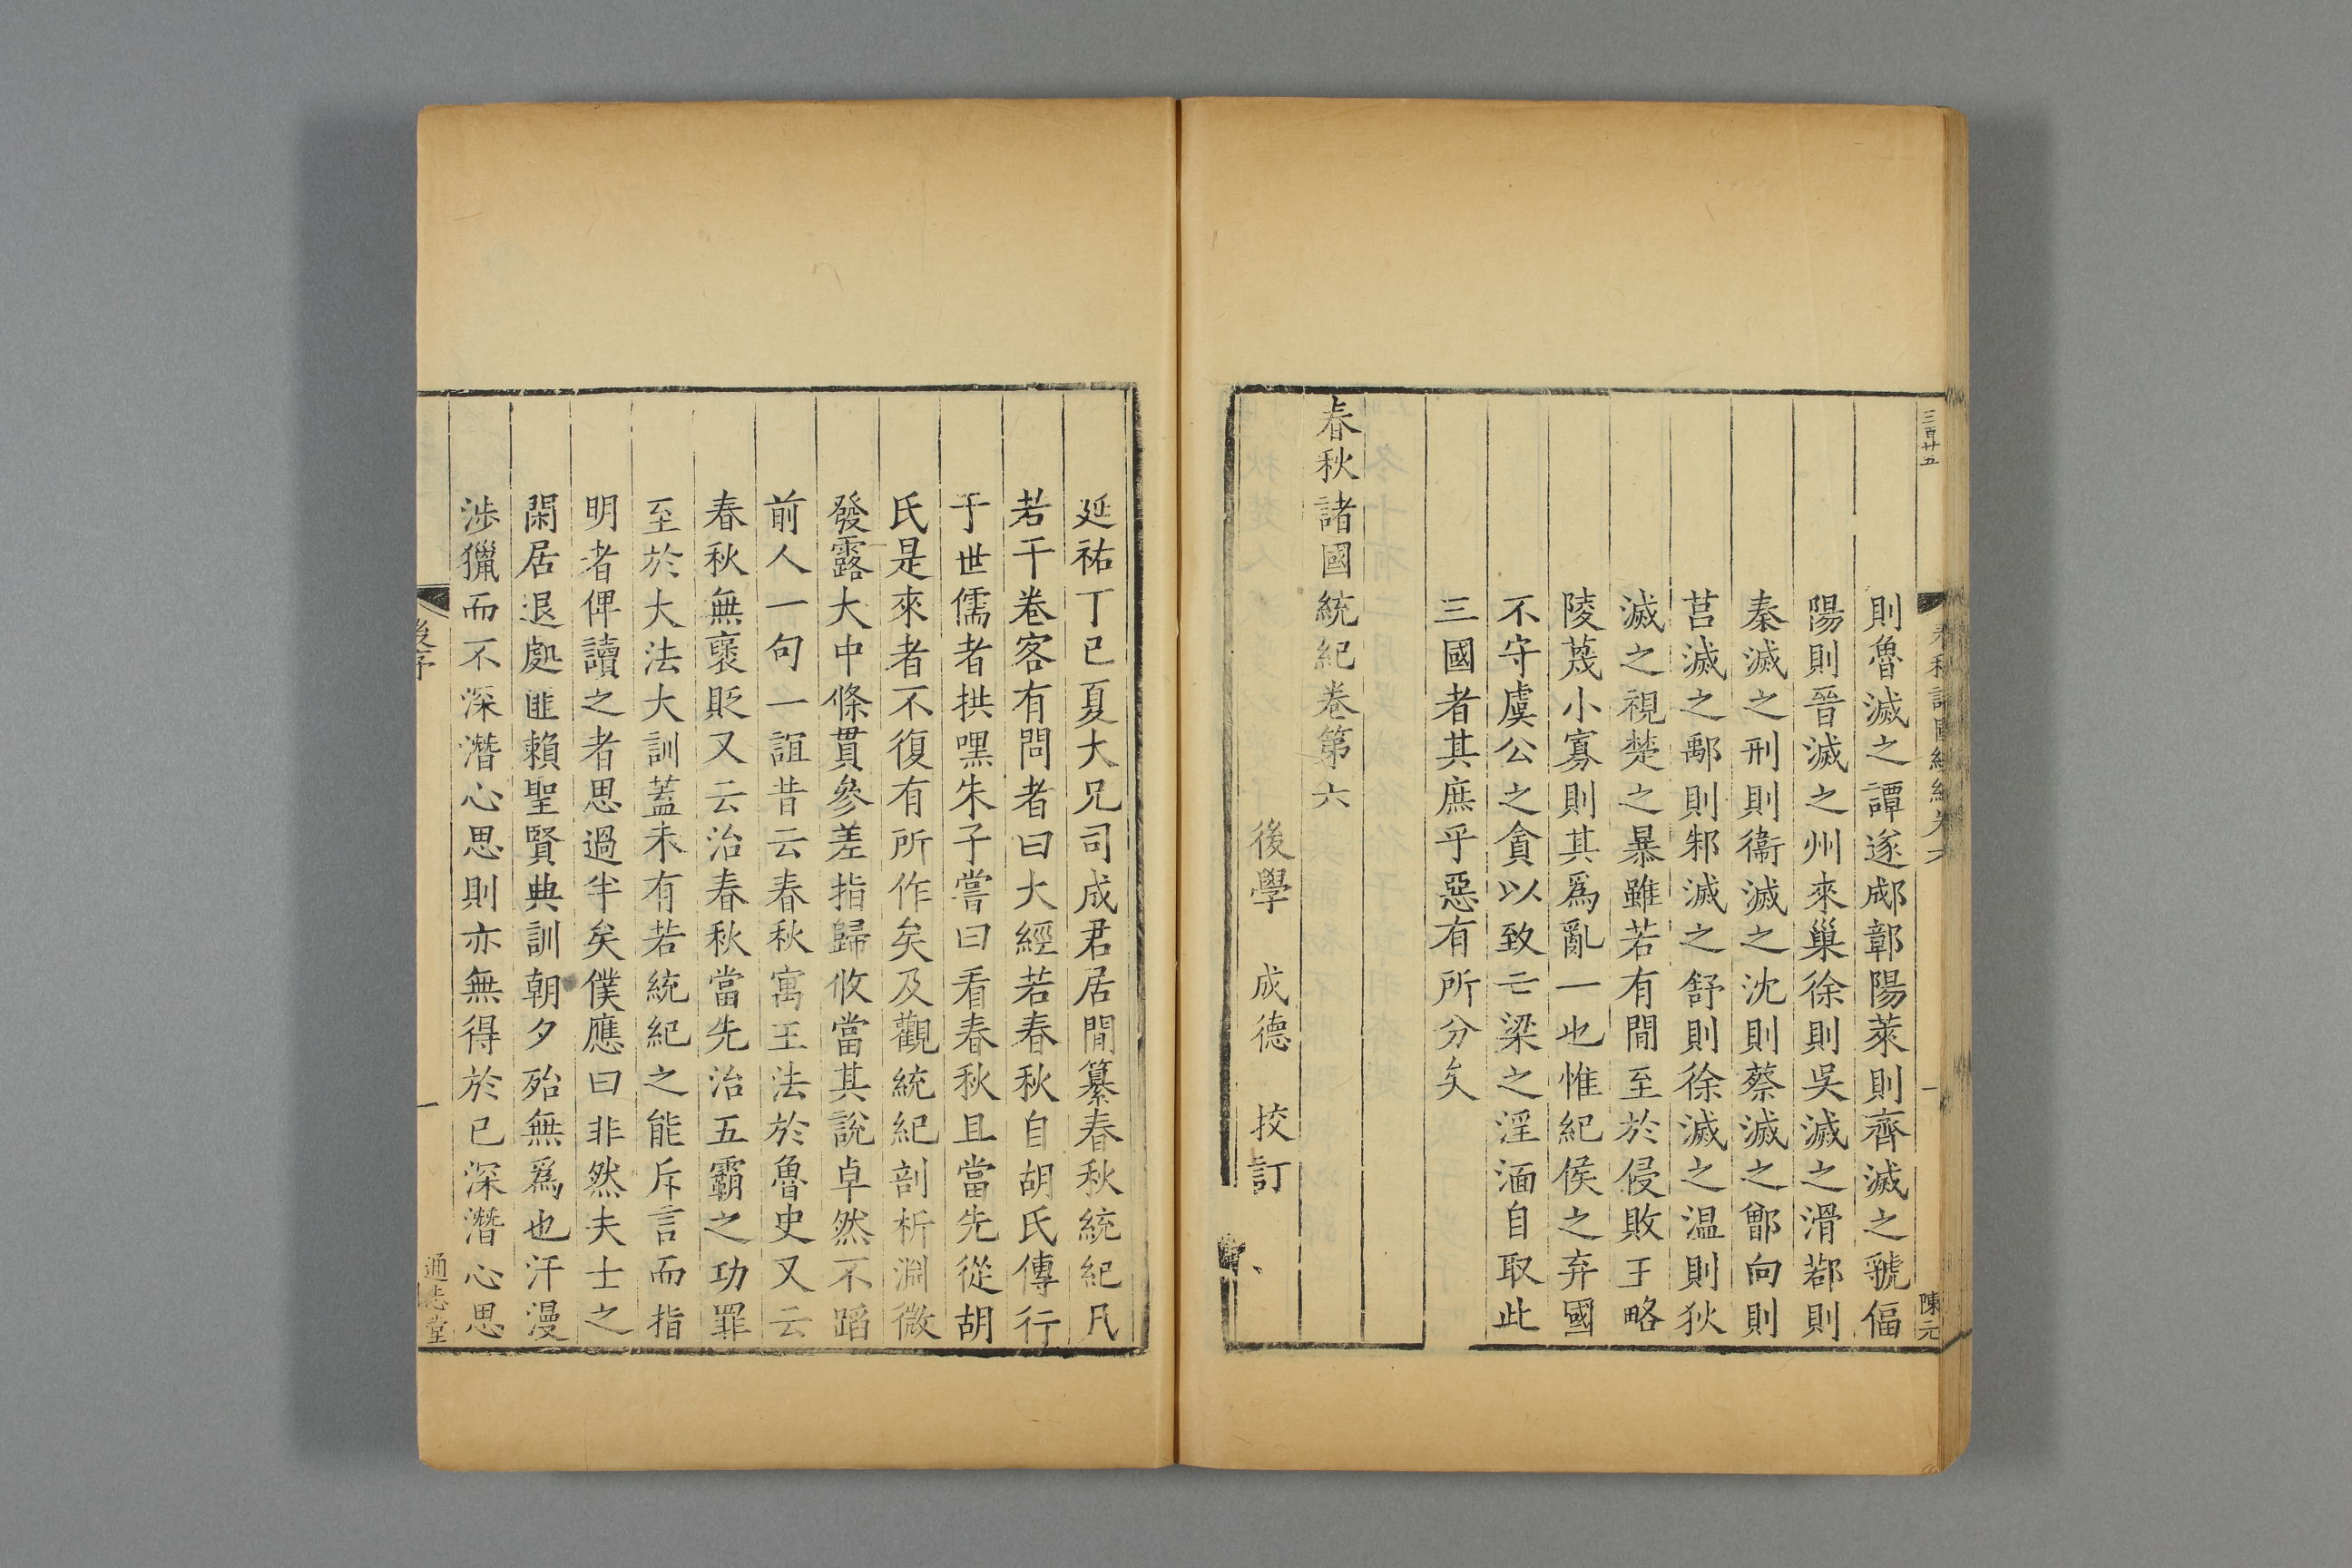 三百廿五
春秋諸國統紀卷六
一
陳元
則魯滅之譚遂郕鄣陽萊則齊滅之虢偪
陽則晉滅之州來巢徐則吳滅之滑鄀則
秦滅之刑則衞滅之沈則蔡滅之鄫向則
莒滅之鄅則邾滅之舒則徐滅之温則狄
滅之視楚之暴雖若有間至於侵敗王略
陵蔑小寡則其爲亂一也惟紀侯之弃國
不守虞公之貪以致亡梁之淫湎自取此
三國者其庶乎惡有所分矣
春秋諸國統紀卷第六
後學 成德 挍訂
延祐丁已夏大兄司成君居閒纂春秋統紀凡
若干卷客有問者曰大經若春秋自胡氏傳行
于世儒者拱嘿朱子嘗曰看春秋且當先從胡
氏是來者不復有所作矣及觀統紀剖析淵微
發露大中條貫參差指歸攸當其說卓然不蹈
前人一句一誼昔云春秋寓王法於魯史又云
春秋無襃貶又云治春秋當先治五霸之功罪
至於大法大訓蓋未有若統紀之能斥言而指
明者俾讀之者思過半矣僕應曰非然夫士之
閑居退處匪賴聖賢典訓朝夕殆無爲也汗漫
渉獵而不深潛心思則亦無得於已深潛心思
後序
一
通志堂